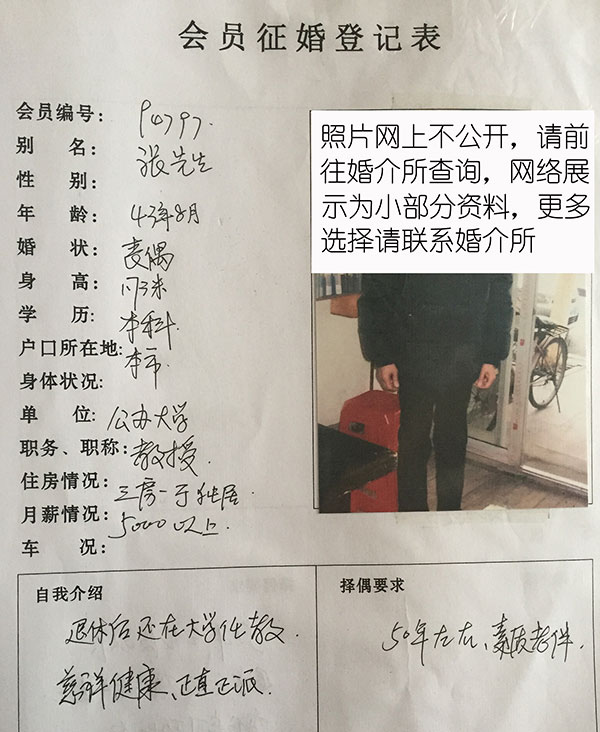 会员征婚登记表
会员编号: 94797.
别 名: 张先生
性 别:
年 龄: 43年8月
婚 状: 丧偶
身 高: 1.73米
学 历: 本科.
户口所在地: 本市.
身体状况:
单 位: 公办大学
职务、职称: 教授.
住房情况: 三房一厅独居.
月薪情况: 5000以上.
车 况:
照片网上不公开，请前
往婚介所查询，网络展
示为小部分资料，更多
选择请联系婚介所
自我介绍
退休后还在大学任教.
慈祥健康、正直正派.
择偶要求
50年左右、素质